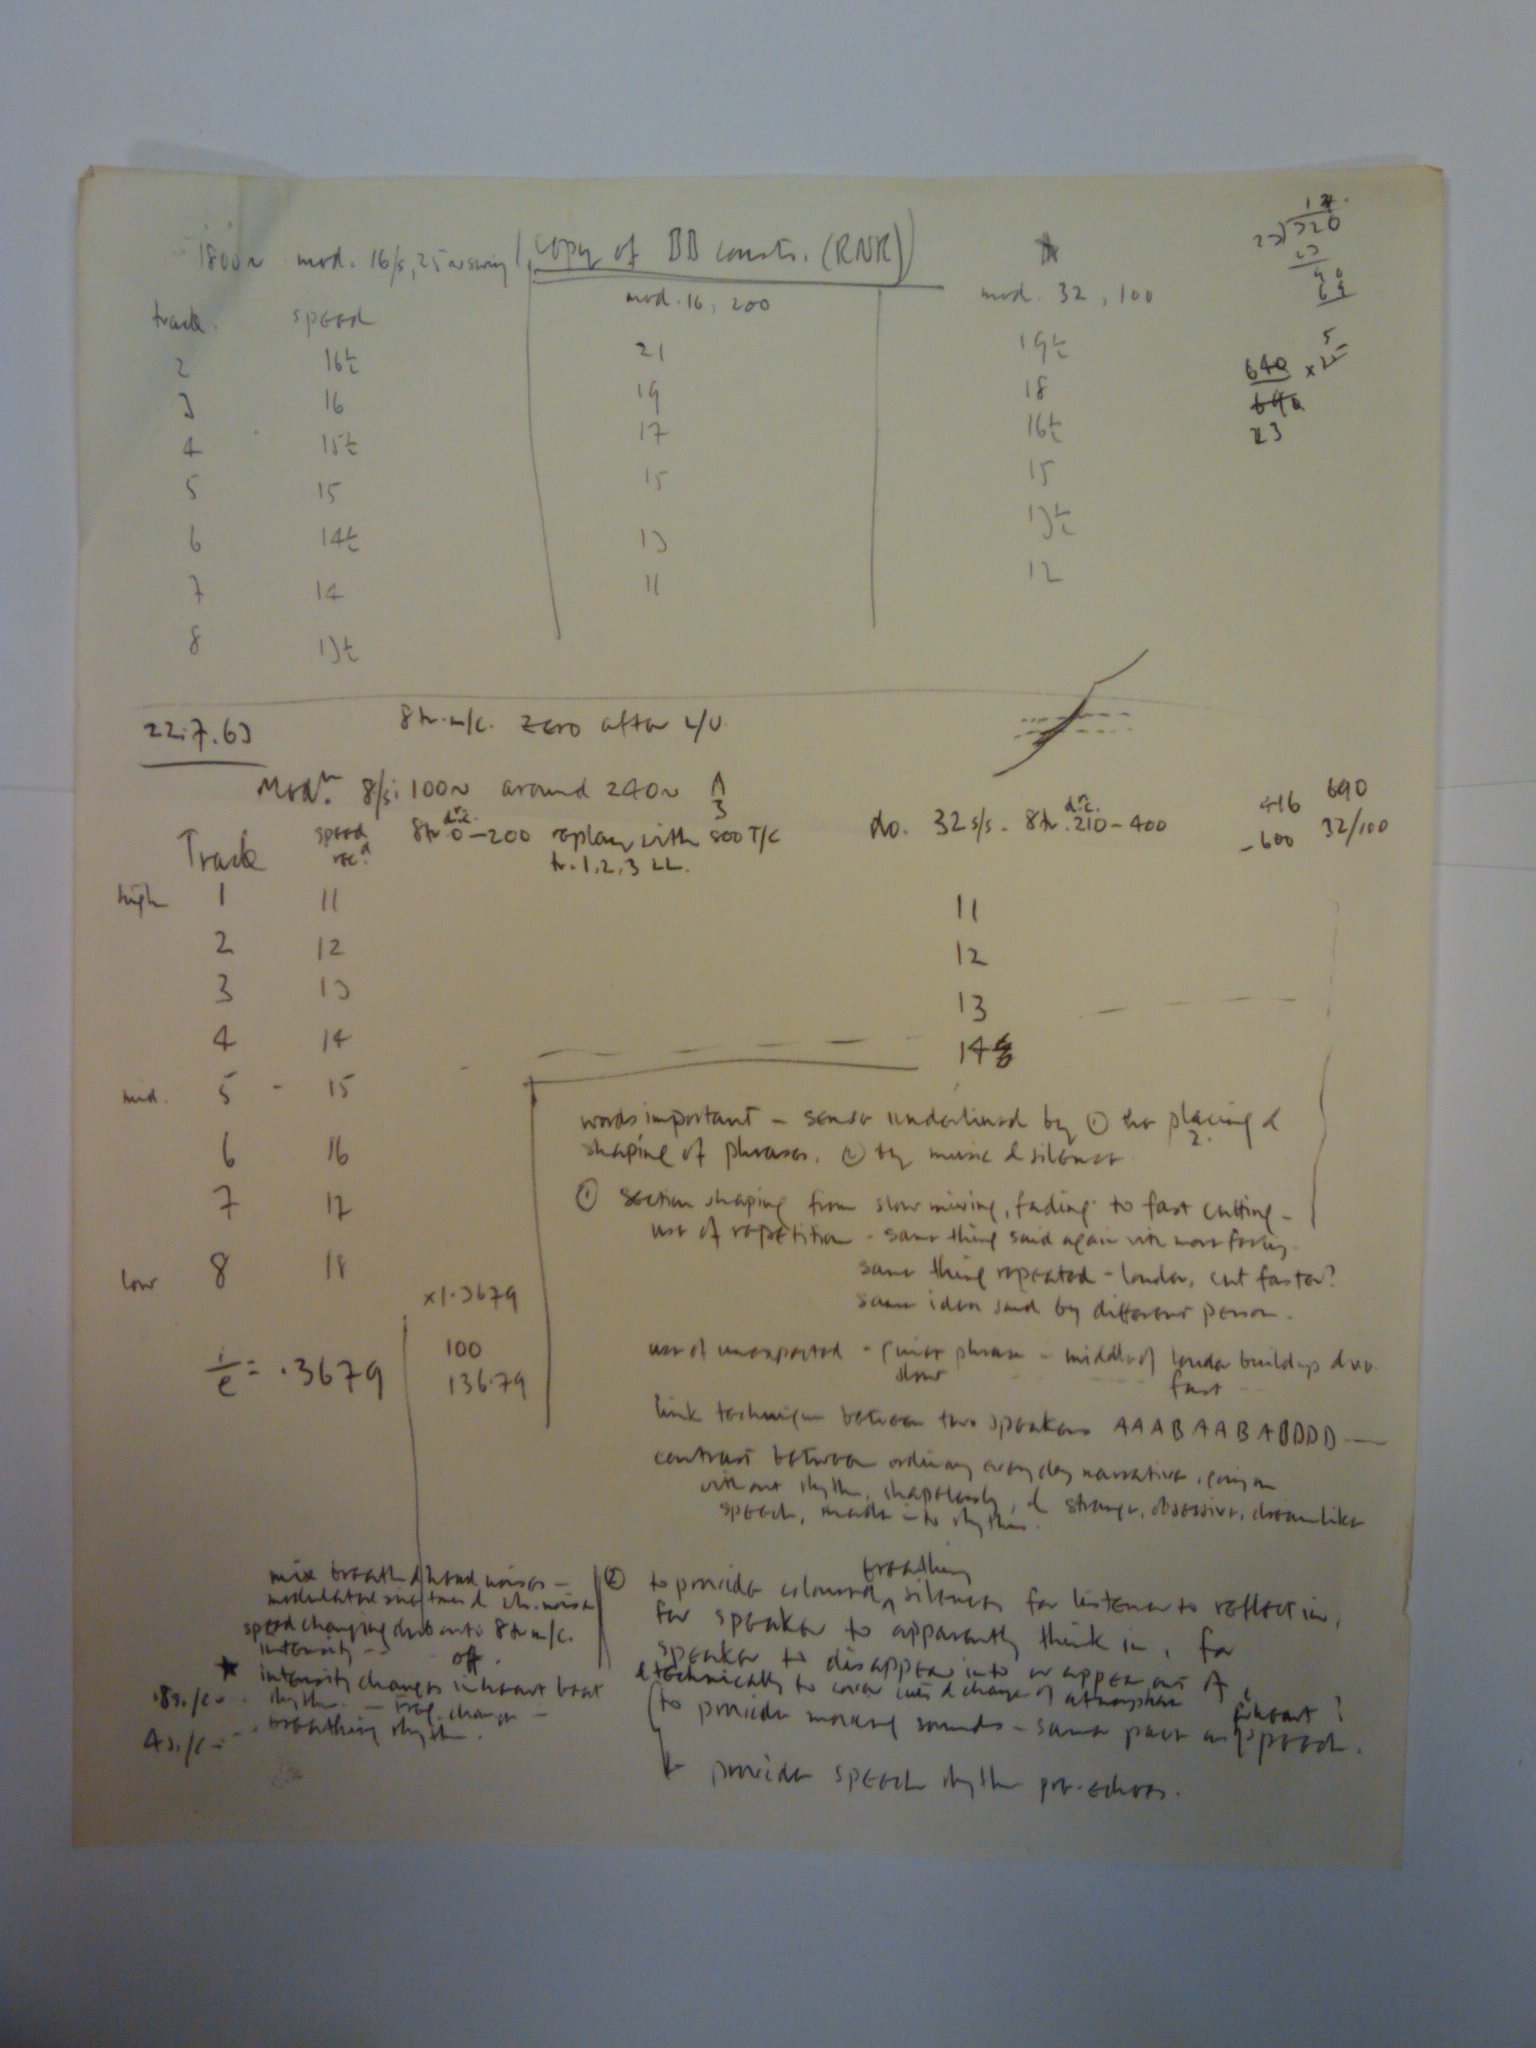 1800~ mod. 16/s, 25~ swing (copy of BB consts. (RNR))
mod. 16, 200
mod. 32, 100
track. speed
2 16½ 21 19½
3 16 19 18
4 15½ 17 16½
5 15 15 15
6 14½ 13 13½
7 14 11 12
8 13½
23)320
23
90
69
640 x 25
5
690
23
22.7.63
8tr. m/c. zero after L/U
Modn. 8/s: 100~ around 240~
8tr. 0-200 replay with 800 T/C
tr. 1,2,3 LL.
do. 32 s/s - 8tr. 210-400
416 690
-600 32/100
Track speed recd
high 1 11 11
2 12 12
3 13 13
4 14 14
mid. 5 - 15
6 16
7 17
low 8 18
x1.3679
1/e = .3679
100
136.79
words important - sense underlined by ① the placing &
shaping of phrases. ② by music & silence
① section shaping from slow mixing, fading to fast cutting -
use of repetition - same thing said again with more feeling.
same thing repeated - louder, cut faster?
same idea said by different person.
use of unexpected - quiet phrase - middle of louder buildup
slow fast
link technique between two speakers AAABAABABBBB —
contrast between ordinary everyday narrative, going on
without rhythm, shapelessly, & strange, obsessive, dreamlike
speech, made into rhythm.
mix breath & head noises -
modulated sine tone & wh. noise
speed changing dub onto 8tr m/c.
intensity -- off.
* intensity changes in heart beat
.8s./c - rhythm - freq. change -
4s./c - breathing rhythm.
breathing
② to provide coloured silences for listener to reflect in,
for speaker to apparently think in, for
speaker to disappear into or appear out of,
& technically to cover cuts & change of atmosphere
(to provide moving sounds - same pace as speech.
heart?
& provide speech rhythm pre-echoes.